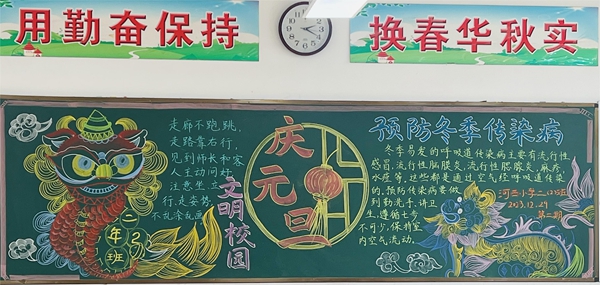 用勤奋保持
换春华秋实
走廊不跑跳,
走路靠右行,
见到师长和客
人主动问好
注意坐立
行走姿势
不乱涂乱画
文明校园
二年班
庆元旦
预防冬季传染病
冬季易发的呼吸道传染病主要有流行性
感冒,流行性脑膜炎,流行性腮腺炎,麻疹,
水痘等,这些都是通过空气经呼吸道传染
的,预防传染病要做
到勤洗手,讲卫
生,遵循七步
不可少,保持室
内空气流动。
第二期